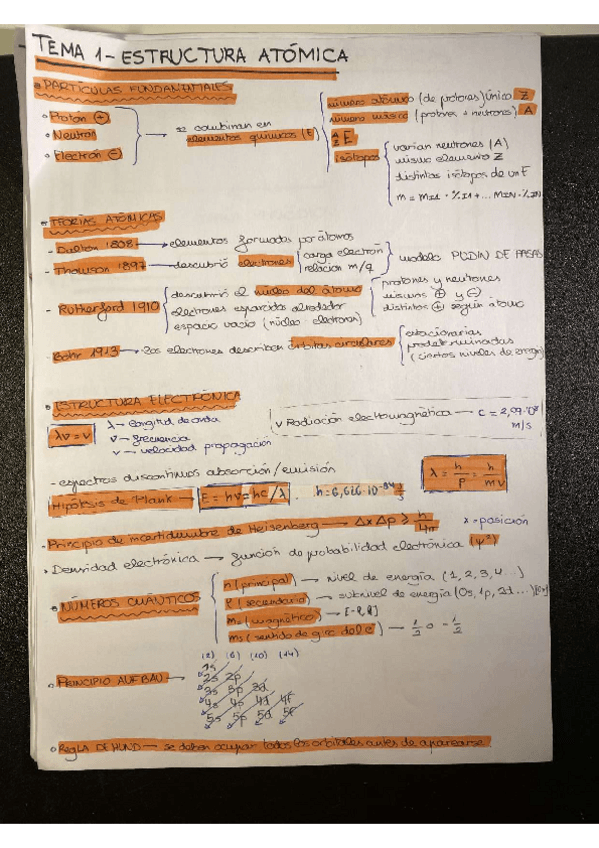 TEMA 1 - ESTRUCTURA ATÓMICA
PARTÍCULAS FUNDAMENTALES
Protón (+)
Neutrón
Electrón (-)
se combinan en
elementos químicos (E)
número atómico (de protones) único Z
número másico (protones + neutrones) A
A Z E
isótopos
varían neutrones (A)
mismo elemento Z
distintos isótopos de un E
m = MI1 · %I1 + ... MIN · %IN
TEORÍAS ATÓMICAS
- Dalton 1808 → elementos formados por átomos
- Thomson 1897 → descubrió electrones
carga electrón
relación m/q
modelo PUDIN DE PASAS
- Rutherford 1910
descubrió el núcleo del átomo
electrones esparcidos alrededor
espacio vacío (núcleo - electrones)
protones y neutrones
mismos (+) y (-)
distintos (+) según átomo
- Bohr 1913 → Los electrones describen órbitas circulares
estacionarias
(ciertos niveles de energía)
ESTRUCTURA ELECTRÓNICA
λν = v
λ → longitud de onda
ν → frecuencia
v → velocidad propagación
v Radiación electromagnética → c =
m/s
- espectros discontinuos absorción/emisión
λ = h/p = h/mv
Hipótesis de Plank → E = hν = hc/λ
- Principio de incertidumbre de Heisenberg → Δx Δp ⩾ h/4π
x = posición
Densidad electrónica → función de probabilidad electrónica (ψ²)
NÚMEROS CUÁNTICOS
n (principal) → nivel de energía (1, 2, 3, 4...)
l (secundario) → subnivel de energía (0s, 1p, 2d...)
m (magnético) → [-l, l]
ms (sentido de giro del e⁻) → 1/2 o -1/2
(2) (6) (10) (14)
PRINCIPIO AUFBAU →
1s
2s 2p
3s 3p 3d
4s 4p 4d 4f
5s 5p 5d 5f
REGLA DE HUND → se deben ocupar todos los orbitales antes de aparearse